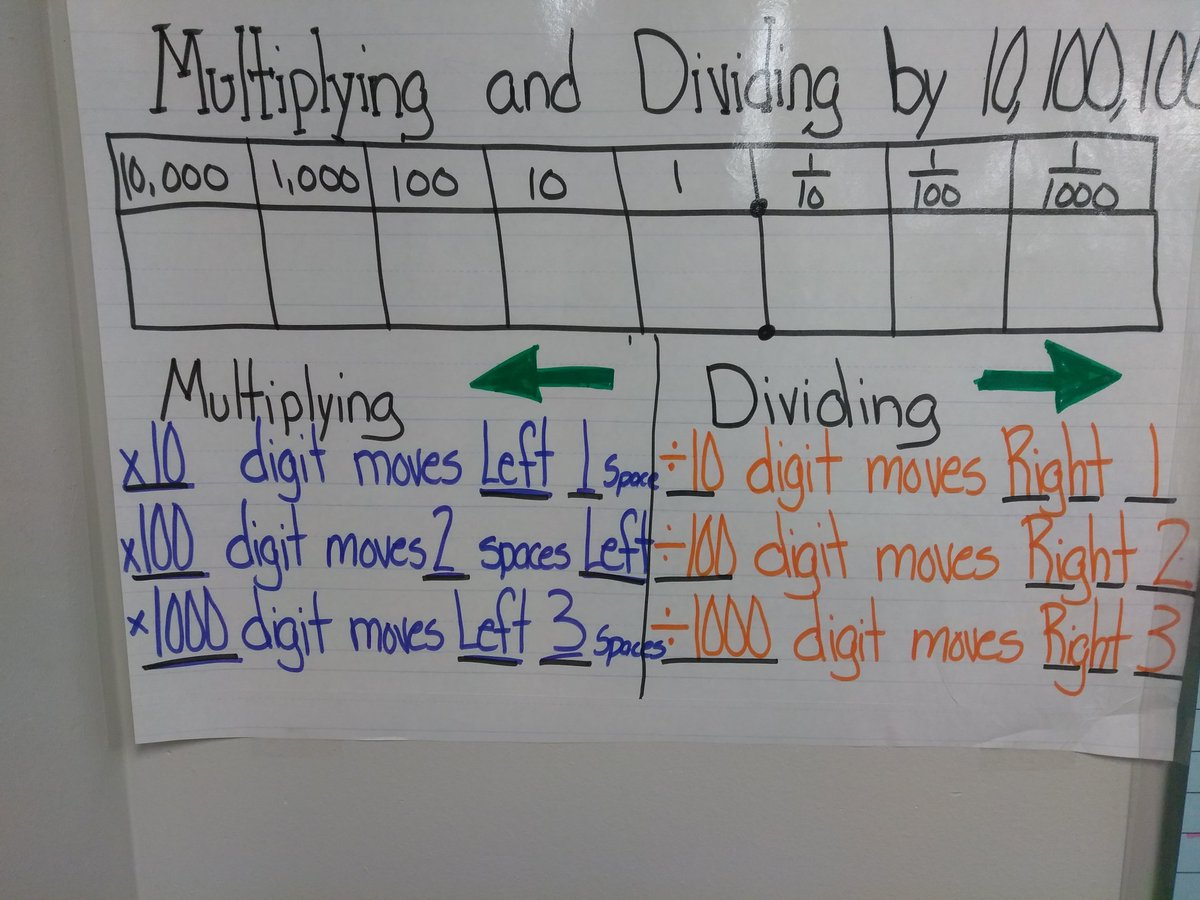 Multiplying and Dividing by 10, 100, 100
10,000 1,000 100 10 1 1/10 1/100 1/1000
Multiplying
×10 digit moves Left 1 space
×100 digit moves 2 spaces Left
×1000 digit moves Left 3 spaces
Dividing
÷10 digit moves Right 1
÷100 digit moves Right 2
÷1000 digit moves Right 3